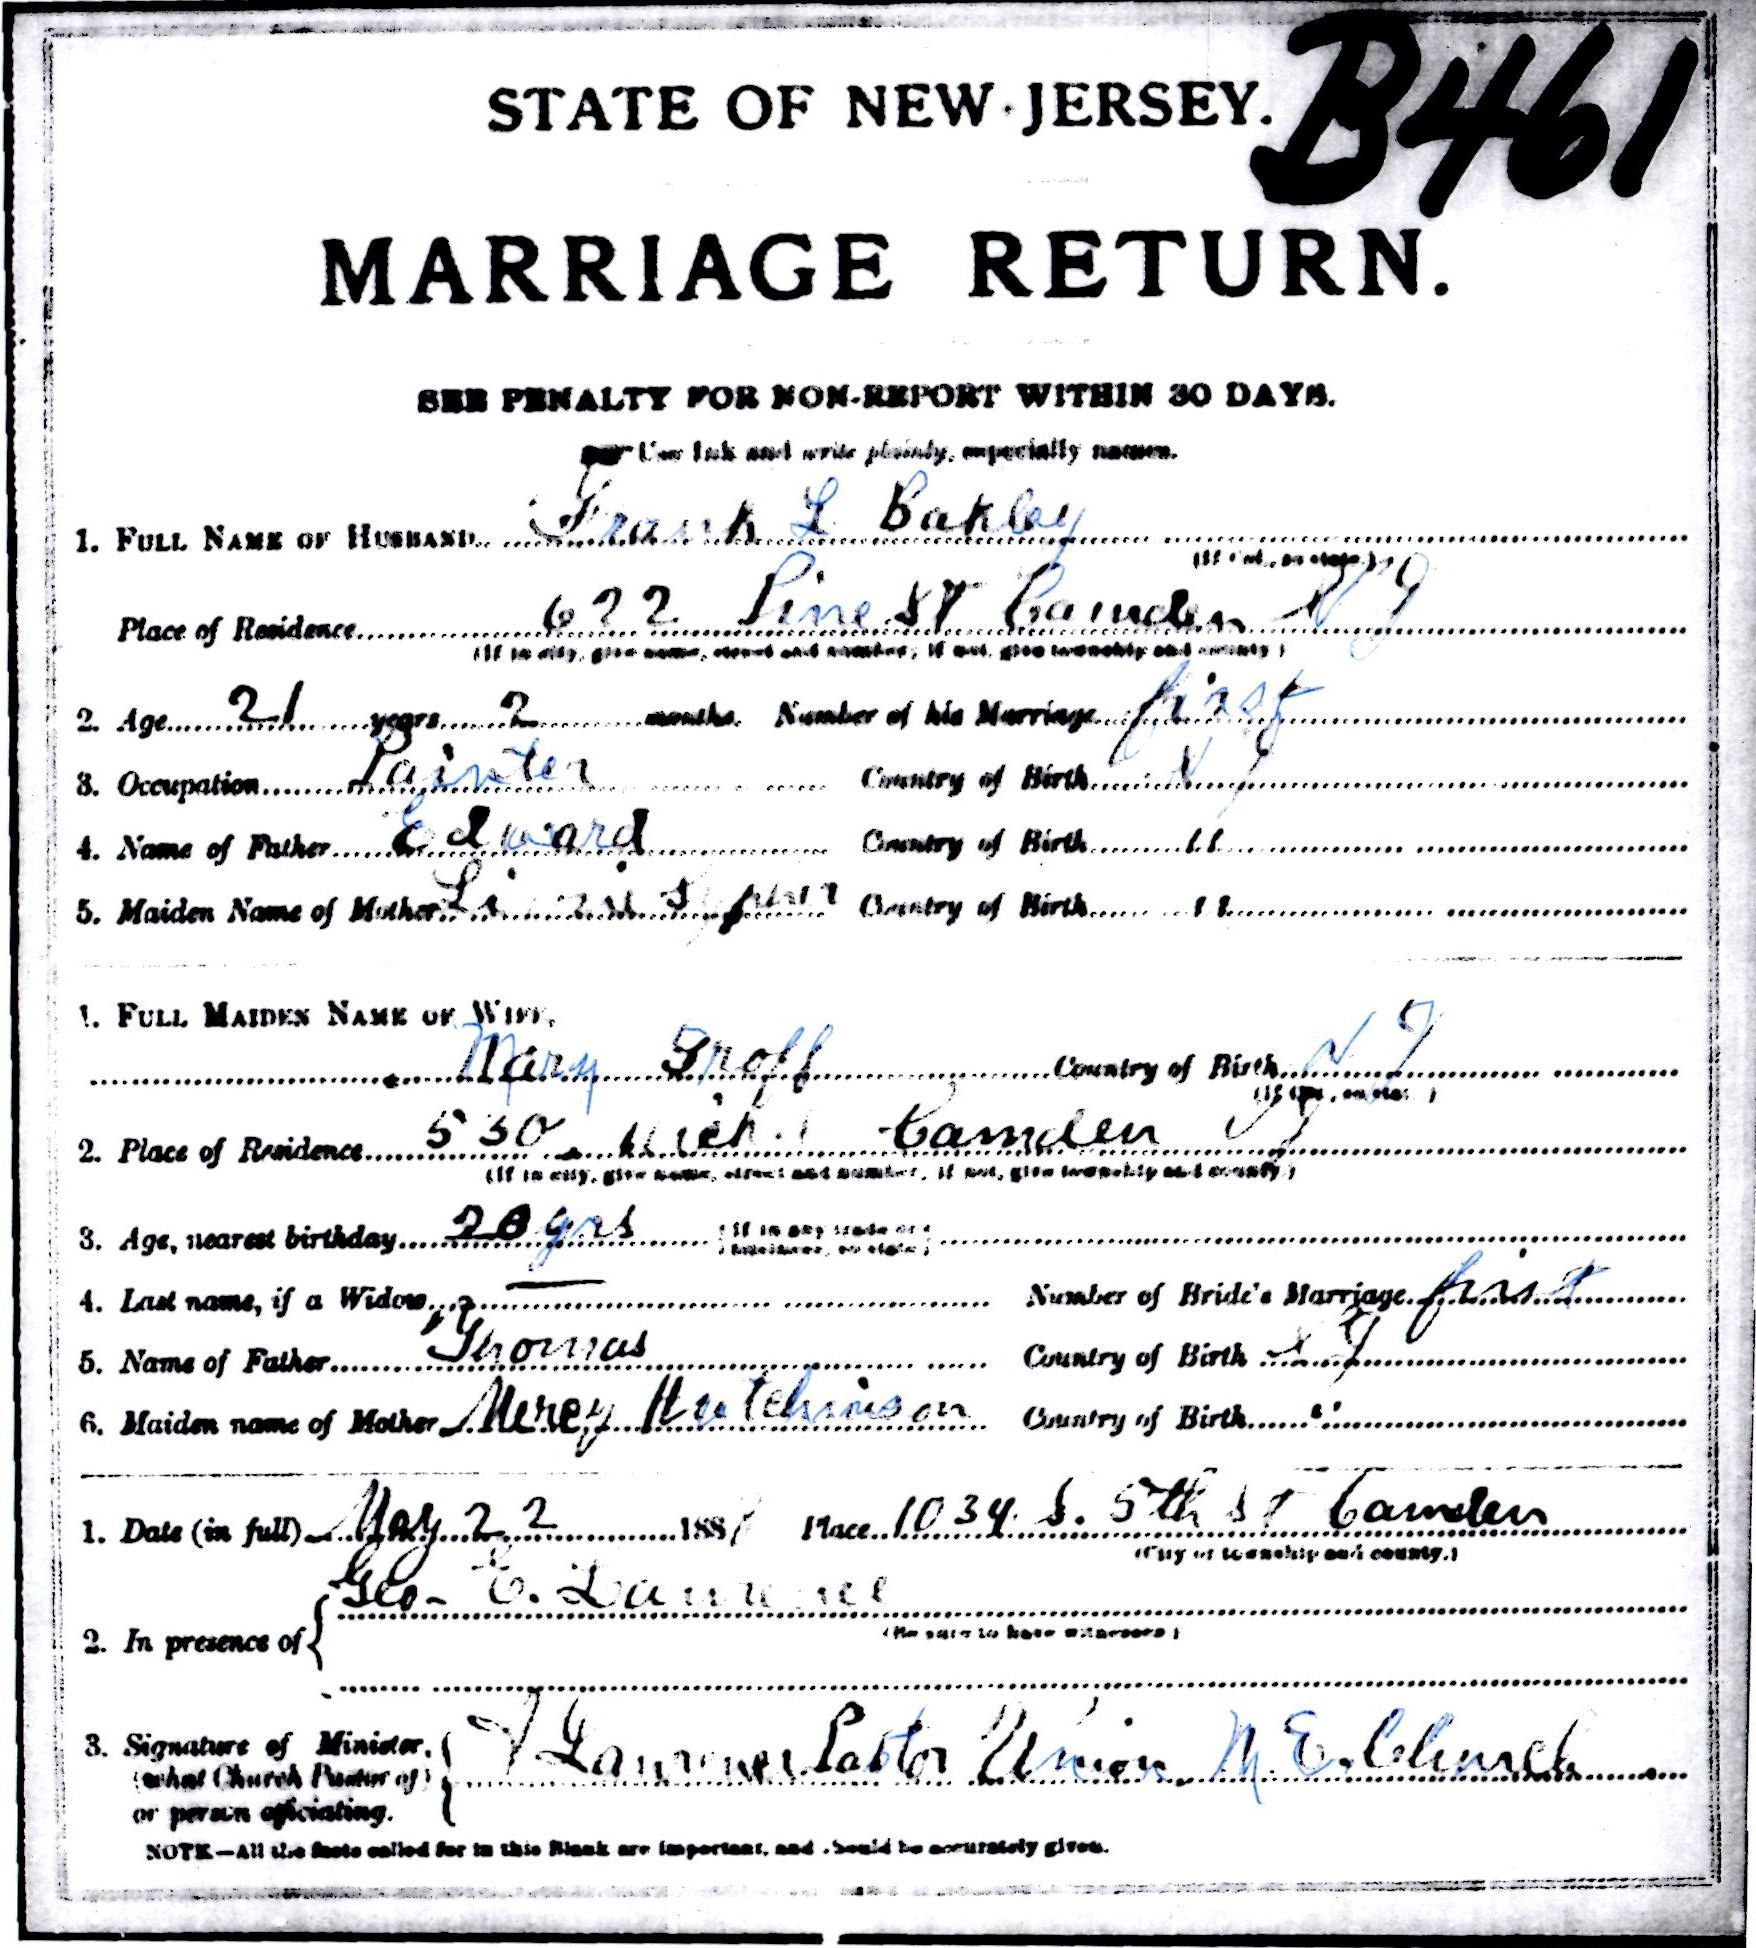 B461
STATE OF NEW JERSEY.
MARRIAGE RETURN.
SEE PENALTY FOR NON-REPORT WITHIN 30 DAYS.
Use Ink and write plainly, especially names.
1. FULL NAME OF HUSBAND Frank L Bakley
(If Col., so state.)
Place of Residence 622 Pine St Camden N J
(If in city, give name, street and number; if not, give township and county)
2. Age 21 years 2 months. Number of his Marriage first
3. Occupation Painter Country of Birth N J
4. Name of Father Edward Country of Birth "
5. Maiden Name of Mother Country of Birth "
1. FULL MAIDEN NAME OF WIFE,
Mary Groff Country of Birth N J
(If Col., so state.)
2. Place of Residence 530 Camden NJ
(If in city, give name, street and number, if not, give township and county)
3. Age, nearest birthday 20 yrs (If in any trade or business, so state)
4. Last name, if a Widow — Number of Bride's Marriage first
5. Name of Father Thomas Country of Birth NJ
6. Maiden name of Mother Mercy Hutchinson Country of Birth "
1. Date (in full) May 22 188 Place 1034 S. 5th St Camden
(City or township and county.)
Geo E. Lawrence
2. In presence of
(Be sure to have witnesses)
3. Signature of Minister, Lawrence Pastor Union M. E. Church
(what Church Pastor of)
or person officiating.
NOTE—All the facts called for in this Blank are important, and should be accurately given.